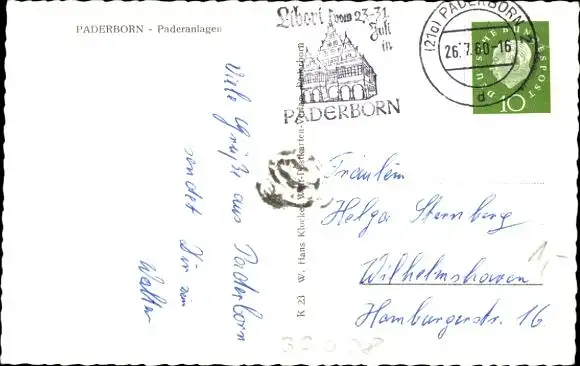 PADERBORN - Paderanlagen
Libori vom 23-31.
Juli
in
PADERBORN
(21a) PADERBORN
26.7.60-16
d
DEUTSCHE BUNDESPOST
10
Viele Grüße aus Paderborn
sendet Dir
Walter
K 23 W. Hans Klocke, Paderborn
Fräulein
Helga Sternberg
Wilhelmshaven
Hamburgerstr. 16
1,-